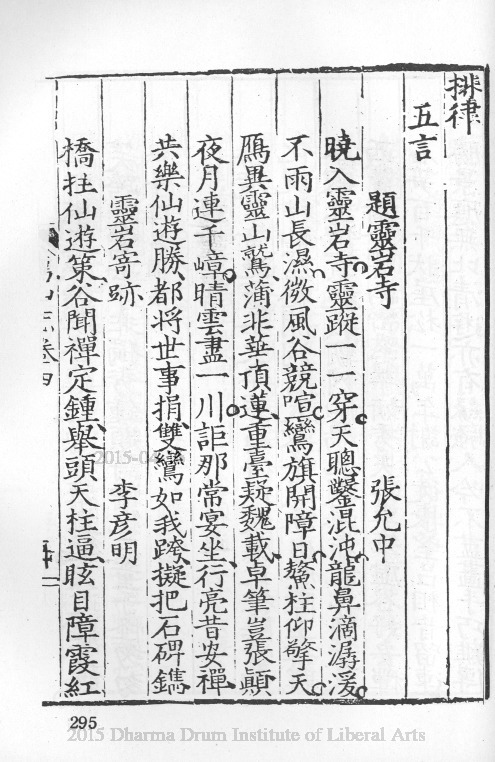 排律
五言
題靈岩寺　張允中
曉入靈岩寺靈蹤一一穿天聰鑿混沌龍鼻滴潺湲
不雨山長濕微風谷競喧鸞旗開障日鰲柱仰擎天
鴈異靈山鷲蒲非華頂蓮重臺疑魏載卓筆豈張顛
夜月連千嶂晴雲盡一川詎那常宴坐行亮昔安禪
共樂仙遊勝都將世事捐雙鸞如我跨擬把石碑鐫
靈岩寄跡　李彥明
橋拄仙遊策谷聞禪定鍾舉頭天柱逼眩目障霞紅
山志卷四
295
2015-04
2015 Dharma Drum Institute of Liberal Arts